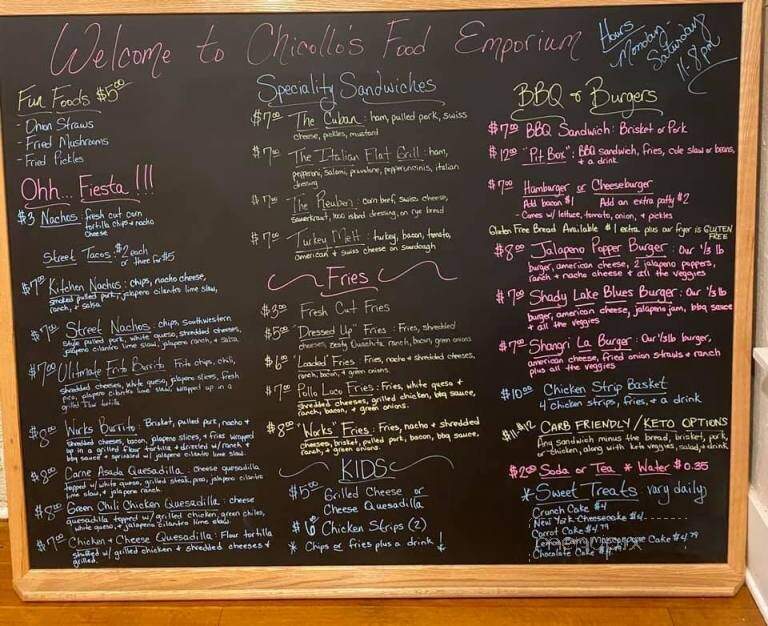 Welcome to Chicollo's Food Emporium
Hours
Monday-
Saturday
11-8pm
Fun Foods $5.00
- Onion Straws
- Fried Mushrooms
- Fried Pickles
Ohh... Fiesta !!!
$3 Nachos: fresh cut corn
tortilla chips & nacho
cheese
Street Tacos: $2 each
or three for $5
$7.00 Kitchen Nachos: chips, nacho cheese,
smoked pulled pork, jalapeno cilantro lime slaw,
ranch, & salsa
$7.00 Street Nachos: chips, southwestern
style pulled pork, white queso, shredded cheeses,
jalapeno cilantro lime slaw, jalapeno ranch, & salsa
$7.00 Ultimate Frito Burrito: Frito chips, chili,
shredded cheeses, white queso, jalapeno slices, fresh
pico, jalapeno cilantro lime slaw, wrapped up in a
grilled flour tortilla
$8.00 Works Burrito: Brisket, pulled pork, nacho &
shredded cheeses, bacon, jalapeno slices, & fries wrapped
up in a grilled flour tortilla & drizzled w/ranch &
bbq sauce & sprinkled w/ jalapeno cilantro lime slaw.
$8.00 Carne Asada Quesadilla: cheese quesadilla
topped w/ white queso, grilled steak, pico, jalapeno cilantro
lime slaw, & jalapeno ranch.
$8.00 Green Chili Chicken Quesadilla: cheese
quesadilla topped w/ grilled chicken, green chiles,
white queso, & jalapeno cilantro lime slaw.
$7.00 Chicken & Cheese Quesadilla: Flour tortilla
stuffed w/ grilled chicken & shredded cheeses &
grilled.
Speciality Sandwiches
$7.00 The Cuban: ham, pulled pork, swiss
cheese, pickles, mustard
$7.00 The Italian Flat Grill: ham,
pepperoni, salami, provolone, pepperoncinis, italian
dressing
$7.00 The Reuben: corn beef, swiss cheese,
sauerkraut, 1000 island dressing, on rye bread
$7.00 Turkey Melt: turkey, bacon, tomato,
american & swiss cheese on sourdough
Fries
$3.00 Fresh Cut Fries
$5.00 "Dressed Up" Fries: Fries, shredded
cheeses, zesty Ouachita ranch, bacon, green onions
$6.00 "Loaded" Fries: Fries, nacho & shredded cheeses,
ranch, bacon, & green onions.
$7.00 Pollo Loco Fries: Fries, white queso &
shredded cheeses, grilled chicken, bbq sauce,
ranch, bacon, & green onions.
$8.00 "Works" Fries: Fries, nacho & shredded
cheeses, brisket, pulled pork, bacon, bbq sauce,
ranch, & green onions.
KIDS
$5.00 Grilled Cheese or
Cheese Quesadilla
$6 Chicken Strips (2)
* Chips or fries plus a drink!
BBQ & Burgers
$7.00 BBQ Sandwich: Brisket or Pork
$12.00 "Pit Box": BBQ sandwich, fries, cole slaw or beans,
& a drink
$7.00 Hamburger or Cheeseburger
Add bacon $1 Add an extra patty $2
- Comes w/ lettuce, tomato, onion, & pickles
Gluten Free Bread Available $1 extra plus our fryer is GLUTEN
FREE
$8.00 Jalapeno Popper Burger: Our 1/3 lb
burger, american cheese, 2 jalapeno poppers,
ranch & nacho cheese & all the veggies
$7.00 Shady Lake Blues Burger: Our 1/3 lb
burger, american cheese, jalapeno jam, bbq sauce
& all the veggies
$7.00 Shangri La Burger: Our 1/3lb burger,
american cheese, fried onion straws & ranch
plus all the veggies
$10.00 Chicken Strip Basket
4 chicken strips, fries, & a drink
$11-$12 CARB FRIENDLY/KETO OPTIONS
Any sandwich minus the bread, brisket, pork,
or chicken, along with keto veggies, salad, & drink
$2.00 Soda or Tea * Water $0.35
* Sweet Treats vary daily
Crunch Cake $4
New York Cheesecake $4
Carrot Cake $4.79
Lemon Berry Mascarpone Cake $4.79
Chocolate Cake